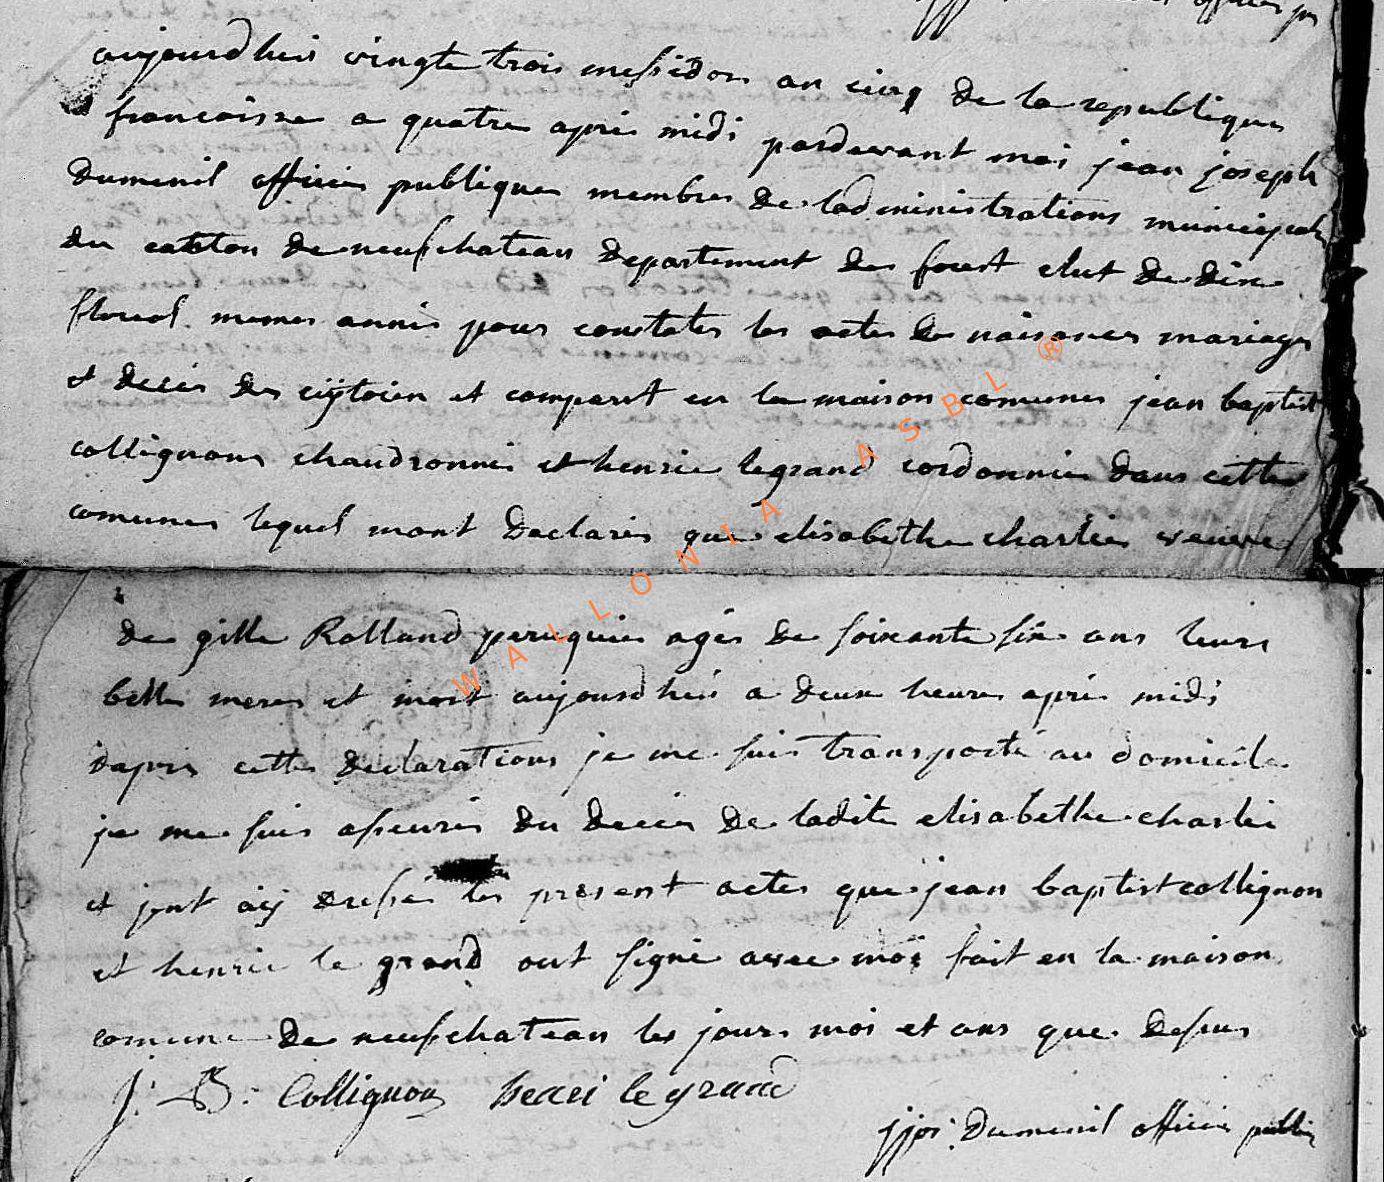 aujourdhuis vingte trois messidor an cinq de la republique
francoisse a quatre apris midi pardevant moi jean joseph
dumenil officier publique membres de ladministrations municipal
du canton de neufchateau departement des forest elut de dix
floreal memes annés pour constater les actes de naissances mariages
et deces des cijtoien et comparut en la maison comunes jean baptist
collignons chaudronnie et henrie legrand cordonnié dans cette
comunes lequel mont declarés que elisabethe charlier veuve
de gille Rolland peruquier agés de soixante six ans leurs
belle meres et mort aujourdhui a deux heures aprés midi
dapres cette declarations je me suis transporté au domicile
je me suis asseurés du deces de ladite elisabethe charlie
et jent aij dressé les present actes que jean baptist collignon
et henrie le grand ont signé avec moi fait en la maison
comune de neufchateau les jours mois et ans que dessus
J. B. Collignon henri le grand
jjos: Dumenil officier public
WALLONIA ASBL ®